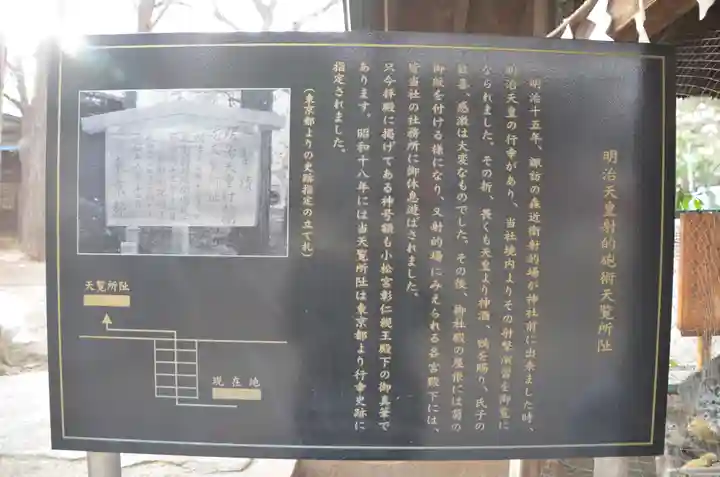 明治天皇射的砲術天覧所址
明治十五年、諏訪の森近衛射的場が神社前に出来ました時、
明治天皇の行幸があり、当社境内よりその射撃演習を御覧に
なられました。その折、畏くも天皇より神酒、鴨を賜り、氏子の
歓喜、感激は大変なものでした。その後、御社殿の屋根には菊の
御紋を付ける様になり、又射的場にみえられる各宮殿下には、
皆当社の社務所に御休息遊ばされました。
只今拝殿に掲げてある神号額も小松宮彰仁親王殿下の御真筆で
あります。昭和十八年には当天覧所址は東京都より行幸史跡に
指定されました。
(東京都よりの史跡指定の立て札)
天覧所址
現在地